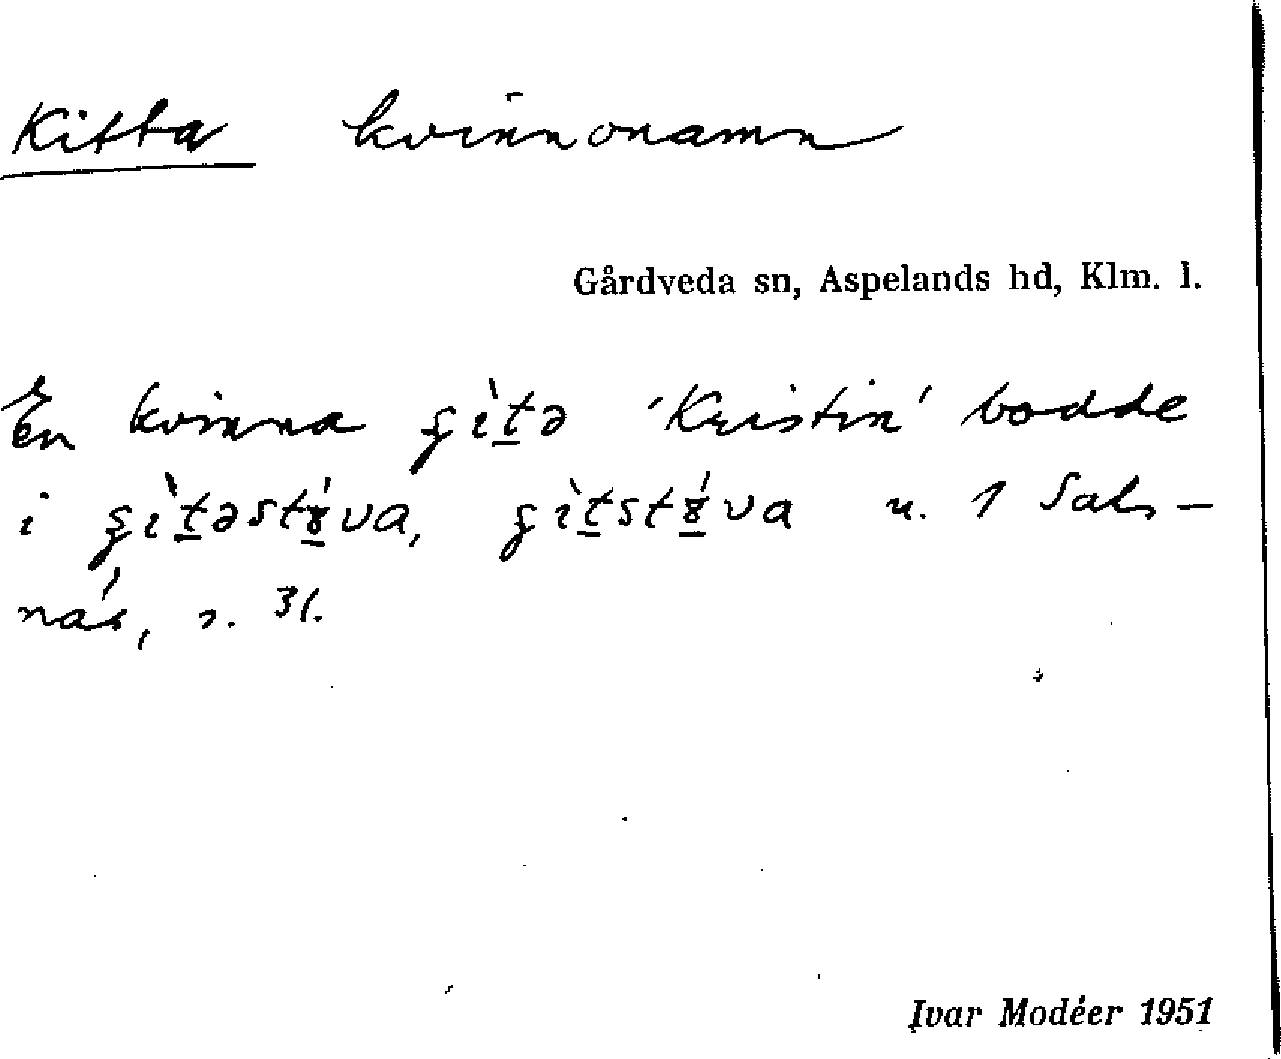 Kitta kvinnonamn
Gårdveda sn, Aspelands hd, Klm. l.
En kvinna 'Kristin' bodde
i u. 1 Sals-
näs, s. 31.
Ivar Modéer 1951